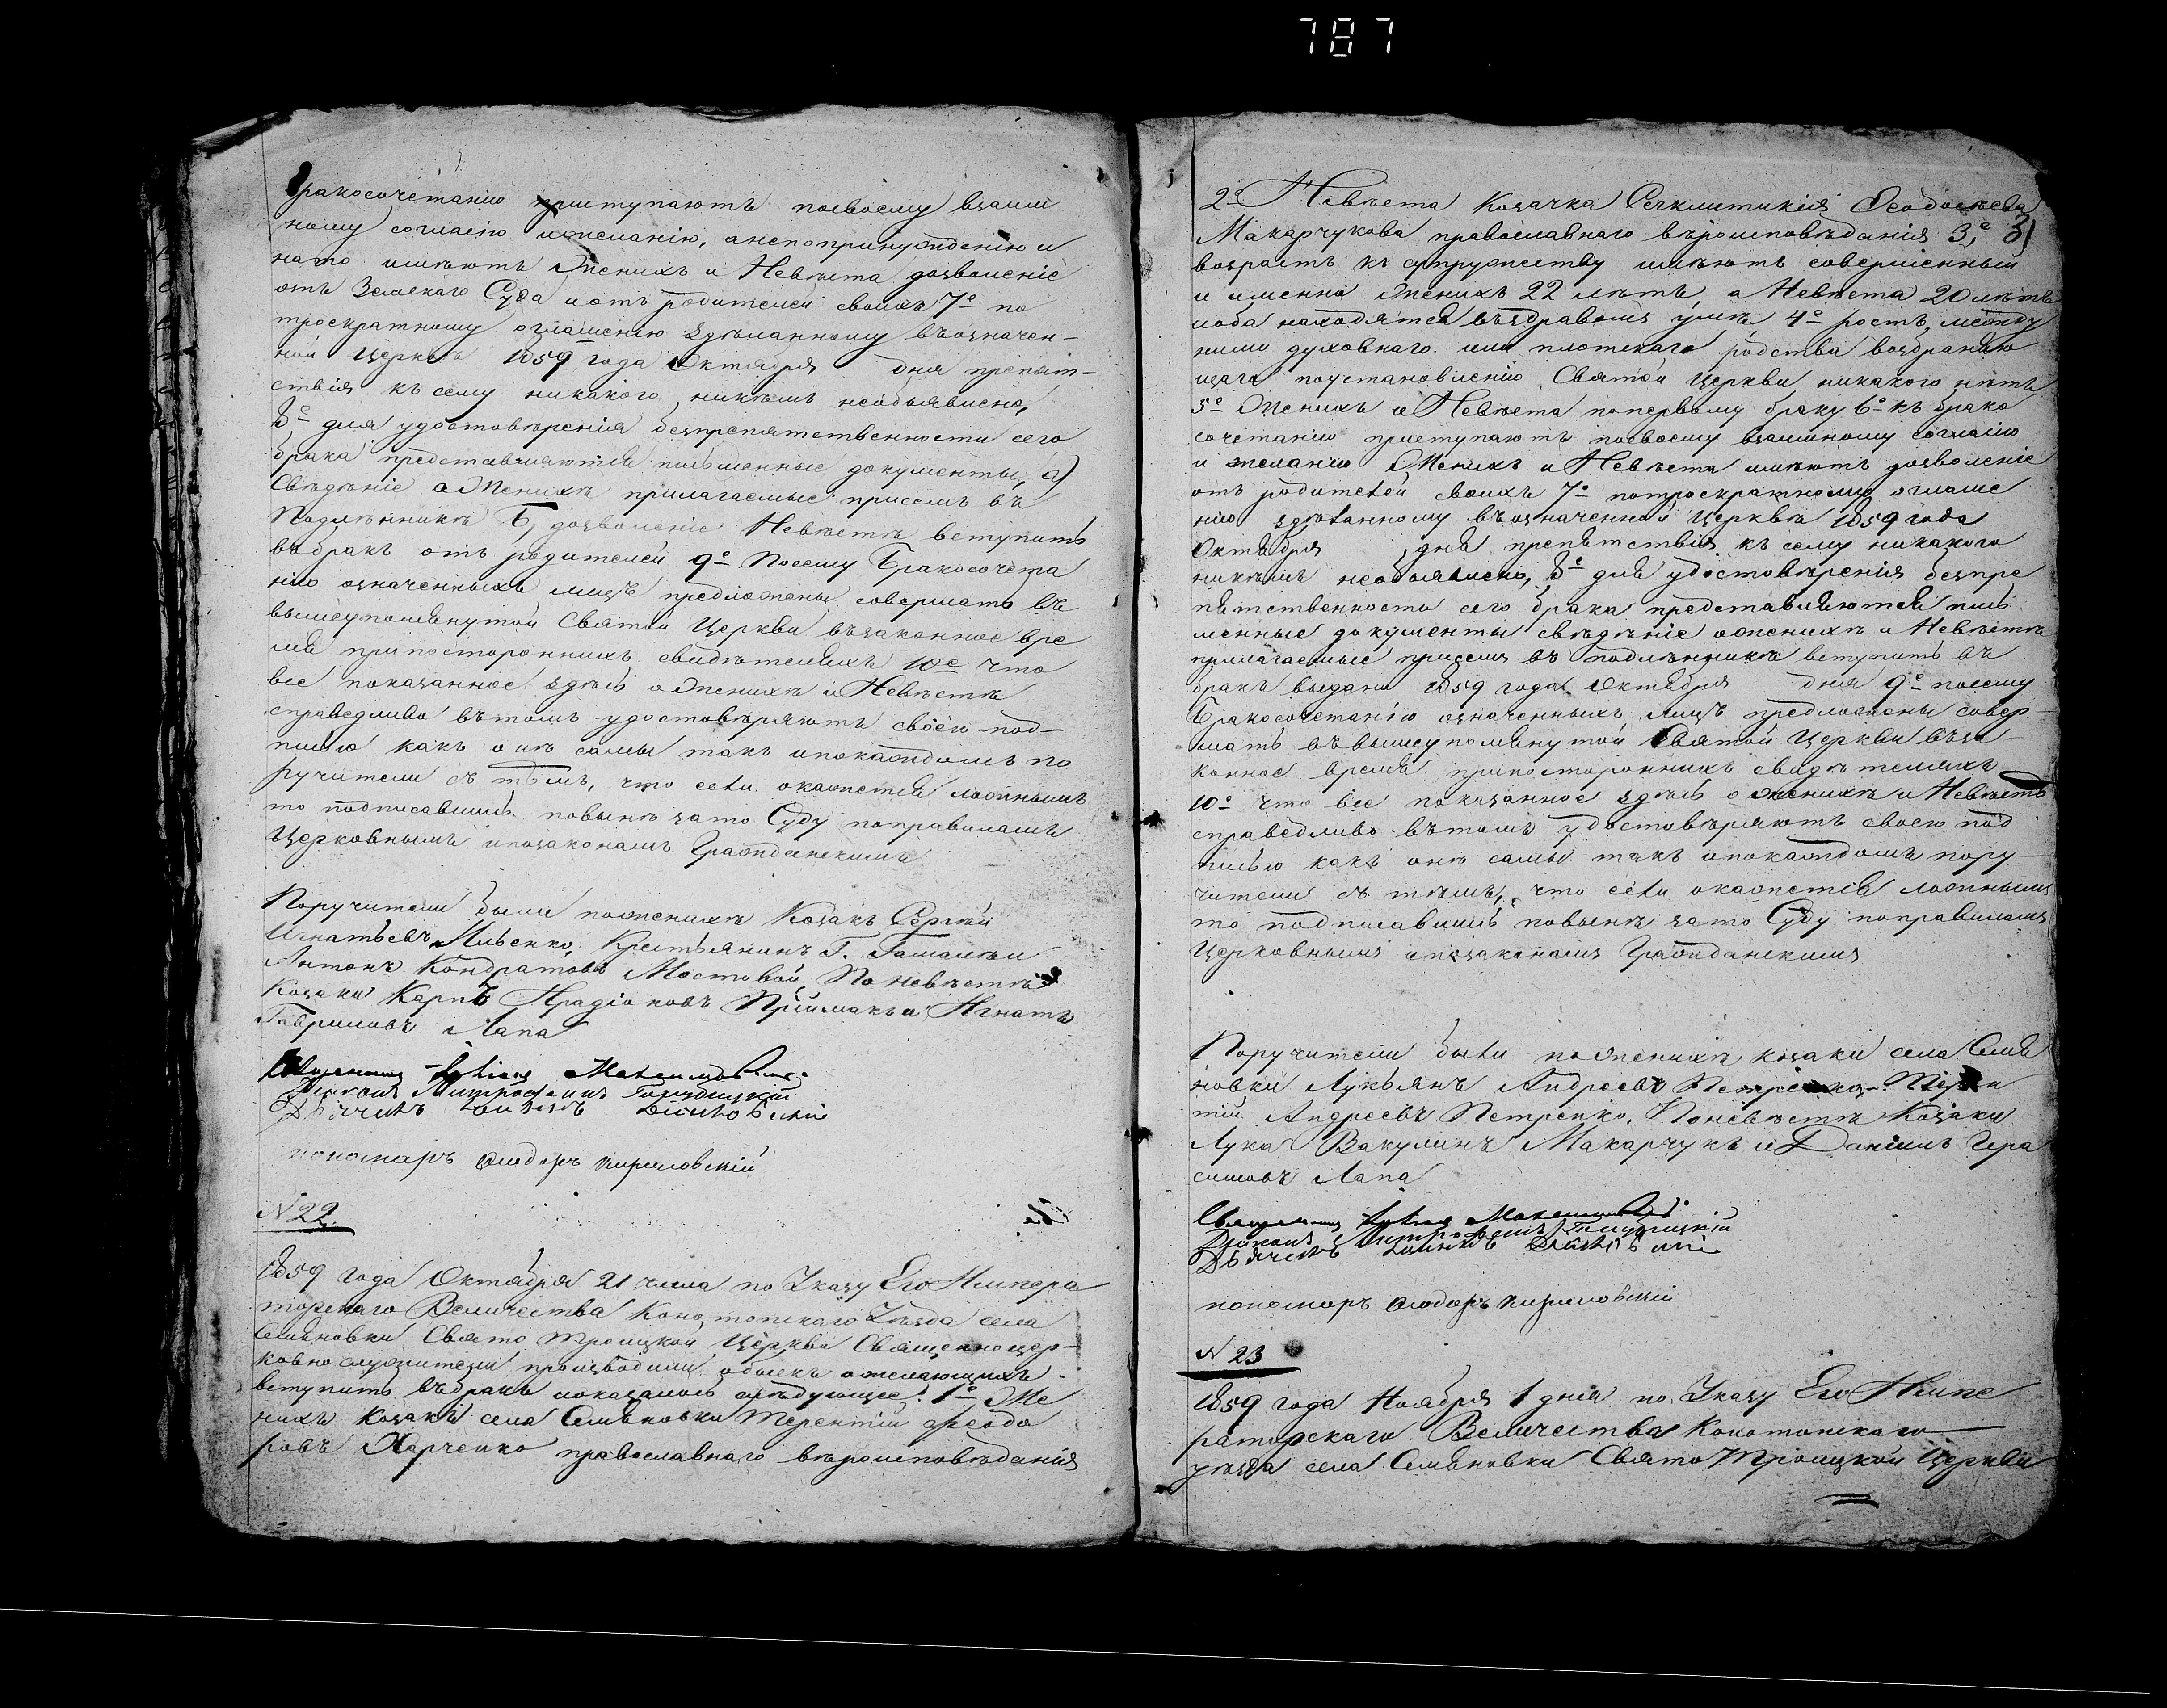 787
бракосочетанію приступаютъ посвоему взаим
ному согласію ижеланію, анепопринужденію и
нато имѣютъ Женихъ и Невѣста дозволеніе
отъ Земскаго Суда иотъ родителей своихъ 7е по
троекратному оглашенію здѣланному въозначен-
ной Церквѣ 1859 года Октября дня препят-
ствія къ сему никакого никѣмъ необъявлено,
8е для удостовѣренія безпрепятственности сего
брака представляются письменные документы, а)
Свѣдѣніе о Женихѣ прилагаемые присемъ въ
Подлѣнникѣ Б, дозволеніе Невѣстѣ вступить
въбракъ отъ родителей 9е Посему Бракосочета
нію означенныхъ лицъ предложены совершать въ
вышеупомянутой Святой Церкви възаконное вре
мя припостороннихъ свидѣтеляхъ 10е что
все показанное здѣсь оЖенихѣ и Невѣстѣ
справедливо вътомъ удостовѣряютъ своею под-
писью какъ онѣ самы такъ ипокаждомъ по
ручители съ тѣмъ, что если окажется ложнымъ
то подписавшись повынѣ зато Суду поправиламъ
Церковнымъ ипозаконамъ Гражданскимъ
Поручители были поженихѣ Козакъ Сергѣй
Игнатьевъ Ильенко, Крестьянинъ Г. Гамалѣи
Антонъ Кондратовъ Мостовой, По невѣстѣ
Козаки Карпъ Ирадіоновъ Приймакъ и Игнатъ
Гавриловъ Лапа
Священникъ Максимовичъ
Діаконъ Митрофанъ
Дьячекъ
пономарь Ѳюдоръ Кириловскій
N 22.
1859 года Октября 21 числа по Указу Его Импера
торскаго Величества Конотопскаго Уѣзда села
Семяновки Свято Троицкой Церкви Священноцер-
ковнослужители производили обыскъ ожелающихъ
вступить въбракъ иоказалось слѣдующее: 1е Же
нихъ Козакъ села Семяновки Терентій Феодо
ровъ Харченко православнаго вѣроисповѣданія
2е Невѣста Козачка Феодосѣева
Макарчукова православнаго вѣроисповѣданія 3,е 3)
возрастъ къ супружеству имѣютъ совершенный
и именно Женихъ 22 лѣтъ, а Невѣста 20 лѣтъ
иоба находятся въздравомъ умѣ, 4е ростъ, между
ними духовнаго или плотскаго родства возбраняю
щаго поустановленію Святой Церкви никакого нѣтъ
5е Женихъ и Невѣста поперьвому браку 6е къ брако
сочетанію приступаютъ посвоему взаимному согласію
и желанію Женихъ и Невѣста имѣютъ дозволеніе
отъ родителей своихъ 7е потроекратному оглаше
нію здѣланному въозначенной Церквѣ 1859 года
Октября дня препятствія къ сему никакого
никѣмъ необъявлено, 8е для удостовѣренія безпре
пятственности сего брака представляются пись
менные документы свѣдѣніе оженихѣ и Невѣстѣ
прилагаемые присемъ въ подлѣнникѣ вступить въ
бракъ выдано 1859 года Октября дня 9е посему
Бракосочетанію означенныхъ лицъ предложены совер-
шать въвышеупомянутой Святой Церкви въза-
конное время припостороннихъ свидѣтеляхъ
10е что все показанное здѣсь о женихѣ и Невѣстѣ
справедливо вътомъ удостовѣряютъ своею под
писью какъ онѣ самы такъ ипокаждомъ пору-
чители съ тѣмъ, что если окажется ложнымъ
то подписавшись повынѣ зато Суду поправиламъ
Церковнымъ ипозаконамъ Гражданскимъ
Поручители были поЖенихѣ козаки села Семя
новки Лукьянъ Андреевъ Петренко Терен
тій Андреевъ Петренко, Поневѣстѣ Козаки
Лука Вакулинъ Макарчукъ и Даніилъ Гера
симовъ Лапа
Священникъ Максимовичъ
Діаконъ Митрофанъ
Дьячекъ
пономарь Ѳюдоръ Кириловскій
N 23
1859 года Ноября 1 дня по Указу Его Импе
раторскаго Величества Конотопскаго
уѣзда села Семяновки Свято Троицкой Церкви